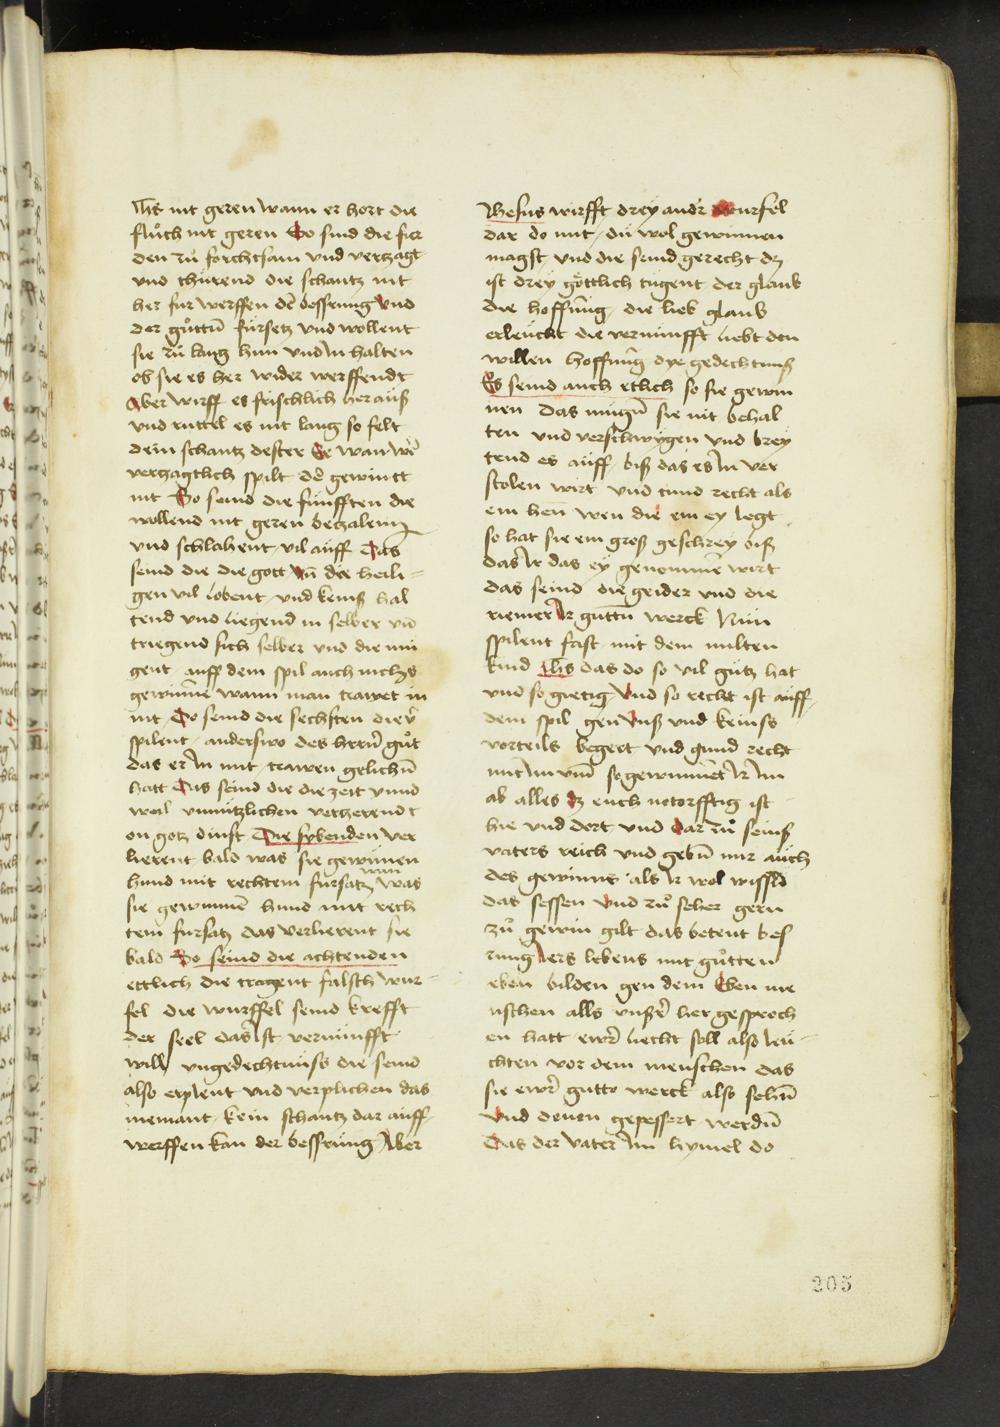 Ihs nit geren wann er hort die
fluͦch nit geren So sind die fier
den zuͦ forchtsam vnd verzagt
vnd thürend die schantz nit
her fur werffen der̄ bessrung vnd
der guͦttn̄ fürsetz vnd wollent
sie zuͦ lang hin vnd In halten
ob sie es her wider werffendt
Aber wirff es frischlich her auß
vnd ruttel es nit lang so felt
dein schantz dester Ee wan wer̄
verzagtlich spilt der̄ gewintt
nit So seind die funfften die
wollend nit geren bezalenn
vnd schlahent vil auff Das
seind die die gott vn̄ die heili=
gen vil lobent vnd keinß hal
tend vnd liegend in selber vn̄
triegend sich selber vnd die mü
gent auff dem spil auch nichs
gewinne̅ wann man trawet in
nit So seind die sechsten die
spilent anderswo des herrn̄ guͦt
das er In mit trawen gelichn̄
hatt Das seind die die zeit vnnd
weil vnnützlichen verzerendt
on gotz dinst Die sybenden ver
lierent bald was sie gewinnen
hund mit rechtem fursatz wan was
sie gewinnen̄ hund mit rech
tem fursatz das verlierent sie
bald So seind die achtenden
ettlich die tragent falsch wur=
fel die wurffel seind krefft
der seel das Ist vernunfft
will vngedechtniss die seind
also erplent vnd verplichen das
niemant kein schantz dar auff
werffen kan der bessrung Aber
Jhesus wirfft drey andr̄ wurfel
dar do mit dü wol gewinnen
magst vnd die seind gerecht dz
ist drey göttlich tugent der glaub
die hoffnūg die lieb glaub
erleucht die vernunfft liebt den
willen hoffnūg dye gedechtnuß
Es seind auch etlich so sie gewin
nen das mügn̄ sie nit behal
ten vnd verschwygen vnd brey
tend es auff biß das es In ver
stolen wirt vnd tund recht als
ein hen̄ wen die ein ey legt
so hat sie ein groß geschrey biß
das Ir das ey genomme̅ wirt
das seind die geider vnd die
riemer Ir guttn̄ werck Nun
spilent fast mit dem milten
kind Ihs das do so vil gutz hat
vnd so gietig vnd so recht ist auff
dem spil gen vnß vnd keinss
vorteils begert vnd gund recht
mit Im vm̄ so gewinnet Ir Im
ab alles dz euch notorfftig ist
hie vnd dort vnd dar zuͦ seinß
vaters reich vnd gebn̄ mir auch
des gewinns als Ir wol wissld
das sessen vnd zuͦ seher gern
zuͦ gewin gilt das betent bes
rung Iers lebens mit guͦtten
eben bilden gen dem Eben me
nschen alls vnßer̄ her gesproch
en hatt ewer̄ liecht soll also leü=
chten vor dem menschen das
sie ewer̄ gutte werck also sehn̄
vnd denen gepessert werdn̄
Das der vater Im hymel do
205